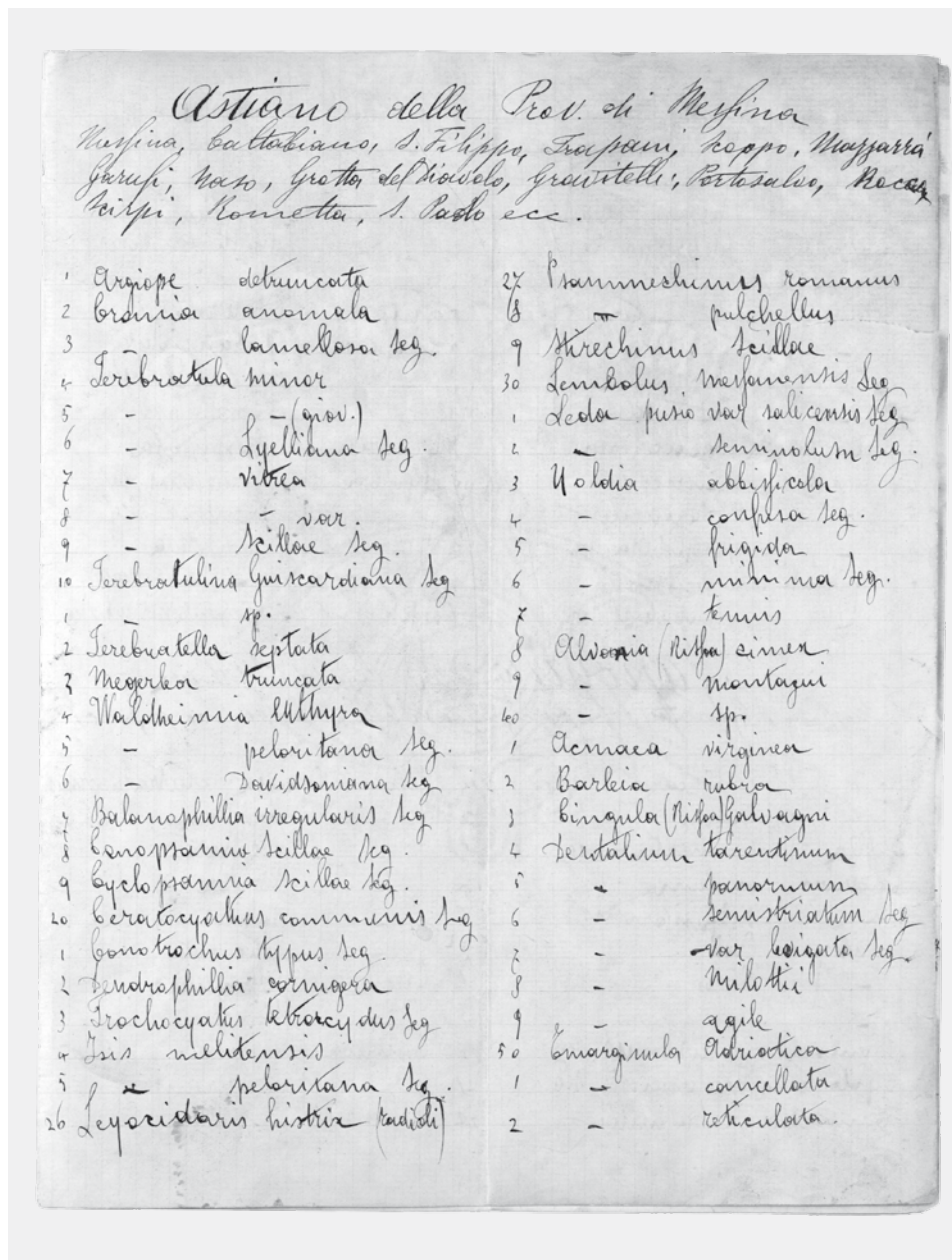 Astiano della Prov. di Messina
Messina, Caltabiano, S. Filippo, Trapani, Scoppo, Mazzarrà
Garufi, Naso, Grotta del Diavolo, Gravitelli, Portosalvo,
Scirpi, Rometta, S. Paolo ecc.
1 Argiope detruncata
2 Crania anomala
3 - lamellosa Seg.
4 Terebratula minor
5 - - (giov.)
6 - Lyelliana Seg.
7 - vitrea
8 - - var.
9 - Scillae Seg.
10 Terebratulina Guiscardiana Seg
1 - sp.
2 Terebratella septata
3 Megerlea truncata
4 Waldheimia euthyra
5 - peloritana Seg.
6 - Davidsoniana Seg
7 Balanophillia irregularis Seg
8 Conopsamia Scillae Seg.
9 Cyclopsamia Scillae Seg.
20 Ceratocyathus communis Seg
1 Conotrochus typus Seg.
2 Dendrophillia cornigera
3 Trochocyatus Seg
4 Isis melitensis
5 - peloritana Seg.
26 Leyocidaris histrix (radioli)
27 Psammechinus romanus
8 - pulchellus
9 Stirechinus Scillae
30 Lembulus messanensis Seg
1 Leda pusio var salicensis Seg
2 - seminolum Seg.
3 Yoldia abbissicola
4 - confusa Seg.
5 - frigida
6 - minima Seg.
7 - tenuis
8 Alvania (Rissoa) cimex
9 - montagui
40 - sp.
1 Acmaea virginea
2 Barleia rubra
3 Cingula (Rissoa) Galvagni
4 Dentalium tarentinum
5 - panormum
6 - semistriatum Seg
7 - - var laevigata Seg.
8 - Milottii
9 - agile
50 Emarginula Adriatica
1 - cancellata
2 - reticulata.